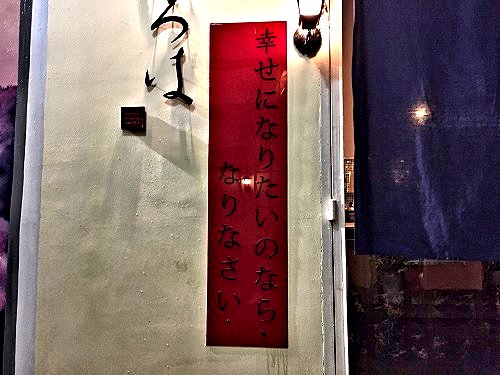 ろは
幸せになりたいのなら、
なりなさい.